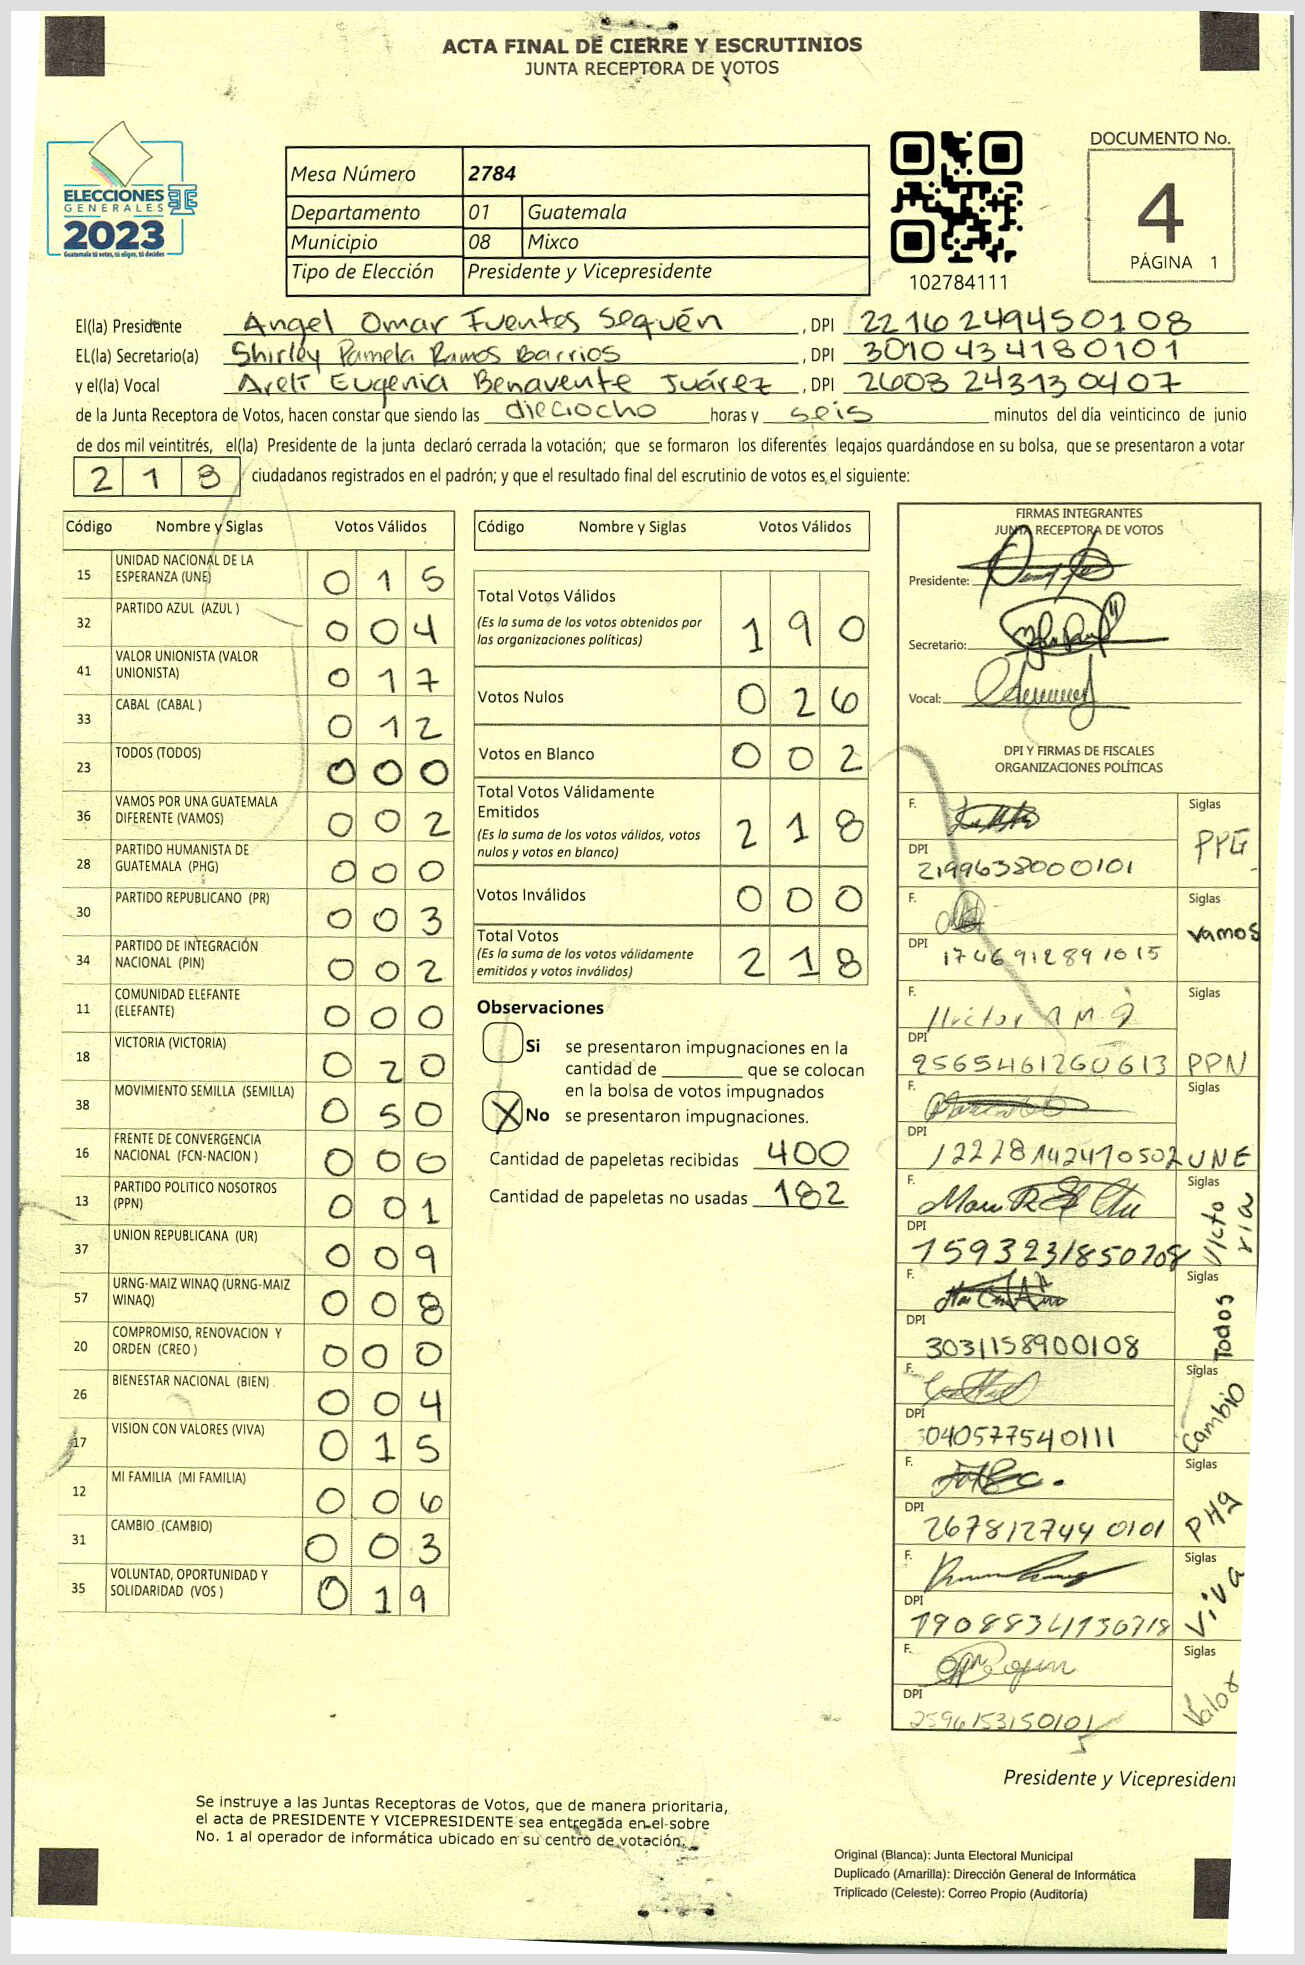 ACTA FINAL DE CIERRE Y ESCRUTINIOS
JUNTA RECEPTORA DE VOTOS
ELECCIONES
GENERALES
2023
Guatemala tú votas, tú eliges, tú decides
Mesa Número 2784
Departamento 01 Guatemala
Municipio 08 Mixco
Tipo de Elección Presidente y Vicepresidente
102784111
DOCUMENTO No.
4
PÁGINA 1
El(la) Presidente Angel Omar Fuentes Sequén , DPI 2216249450108
EL(la) Secretario(a) Shirley Pamela Ramos Barrios , DPI 3010434180101
y el(la) Vocal Areli Eugenia Benavente Juárez , DPI 2603243130407
de la Junta Receptora de Votos, hacen constar que siendo las dieciocho horas y seis minutos del día veinticinco de junio
de dos mil veintitrés, el(la) Presidente de la junta declaró cerrada la votación; que se formaron los diferentes legajos guardándose en su bolsa, que se presentaron a votar
218 ciudadanos registrados en el padrón; y que el resultado final del escrutinio de votos es el siguiente:
Código Nombre y Siglas Votos Válidos
15 UNIDAD NACIONAL DE LA ESPERANZA (UNE) 015
32 PARTIDO AZUL (AZUL ) 004
41 VALOR UNIONISTA (VALOR UNIONISTA) 017
33 CABAL (CABAL ) 012
23 TODOS (TODOS) 000
36 VAMOS POR UNA GUATEMALA DIFERENTE (VAMOS) 002
28 PARTIDO HUMANISTA DE GUATEMALA (PHG) 000
30 PARTIDO REPUBLICANO (PR) 003
34 PARTIDO DE INTEGRACIÓN NACIONAL (PIN) 002
11 COMUNIDAD ELEFANTE (ELEFANTE) 000
18 VICTORIA (VICTORIA) 020
38 MOVIMIENTO SEMILLA (SEMILLA) 050
16 FRENTE DE CONVERGENCIA NACIONAL (FCN-NACION ) 000
13 PARTIDO POLITICO NOSOTROS (PPN) 001
37 UNION REPUBLICANA (UR) 009
57 URNG-MAIZ WINAQ (URNG-MAIZ WINAQ) 008
20 COMPROMISO, RENOVACION Y ORDEN (CREO ) 000
26 BIENESTAR NACIONAL (BIEN) 004
17 VISION CON VALORES (VIVA) 015
12 MI FAMILIA (MI FAMILIA) 006
31 CAMBIO (CAMBIO) 003
35 VOLUNTAD, OPORTUNIDAD Y SOLIDARIDAD (VOS ) 019
Código Nombre y Siglas Votos Válidos
Total Votos Válidos 190
(Es la suma de los votos obtenidos por
las organizaciones políticas)
Votos Nulos 026
Votos en Blanco 002
Total Votos Válidamente
Emitidos 218
(Es la suma de los votos válidos, votos
nulos y votos en blanco)
Votos Inválidos 000
Total Votos 218
(Es la suma de los votos válidamente
emitidos y votos inválidos)
Observaciones
Si se presentaron impugnaciones en la
cantidad de ________ que se colocan
en la bolsa de votos impugnados
X No se presentaron impugnaciones.
Cantidad de papeletas recibidas 400
Cantidad de papeletas no usadas 182
FIRMAS INTEGRANTES
JUNTA RECEPTORA DE VOTOS
Presidente:
Secretario:
Vocal:
DPI Y FIRMAS DE FISCALES
ORGANIZACIONES POLÍTICAS
F. Siglas PPG
DPI 2199638000101
F. Siglas Vamos
DPI 1746912891015
F. Hector Siglas PPN
DPI 9565461260613
F. Siglas UNE
DPI 1222814241 0502
F. Siglas Victoria
DPI 1593231850708
F. Siglas Todos
DPI 3031158900108
F. Siglas Cambio
DPI 3040577540111
F. Siglas PHg
DPI 2678127440101
F. Siglas Viva
DPI
F. Siglas Valor
DPI 2596153150101
Presidente y Vicepresident
Se instruye a las Juntas Receptoras de Votos, que de manera prioritaria,
el acta de PRESIDENTE Y VICEPRESIDENTE sea entregada en el sobre
No. 1 al operador de informática ubicado en su centro de votación.
Original (Blanca): Junta Electoral Municipal
Duplicado (Amarilla): Dirección General de Informática
Triplicado (Celeste): Correo Propio (Auditoría)